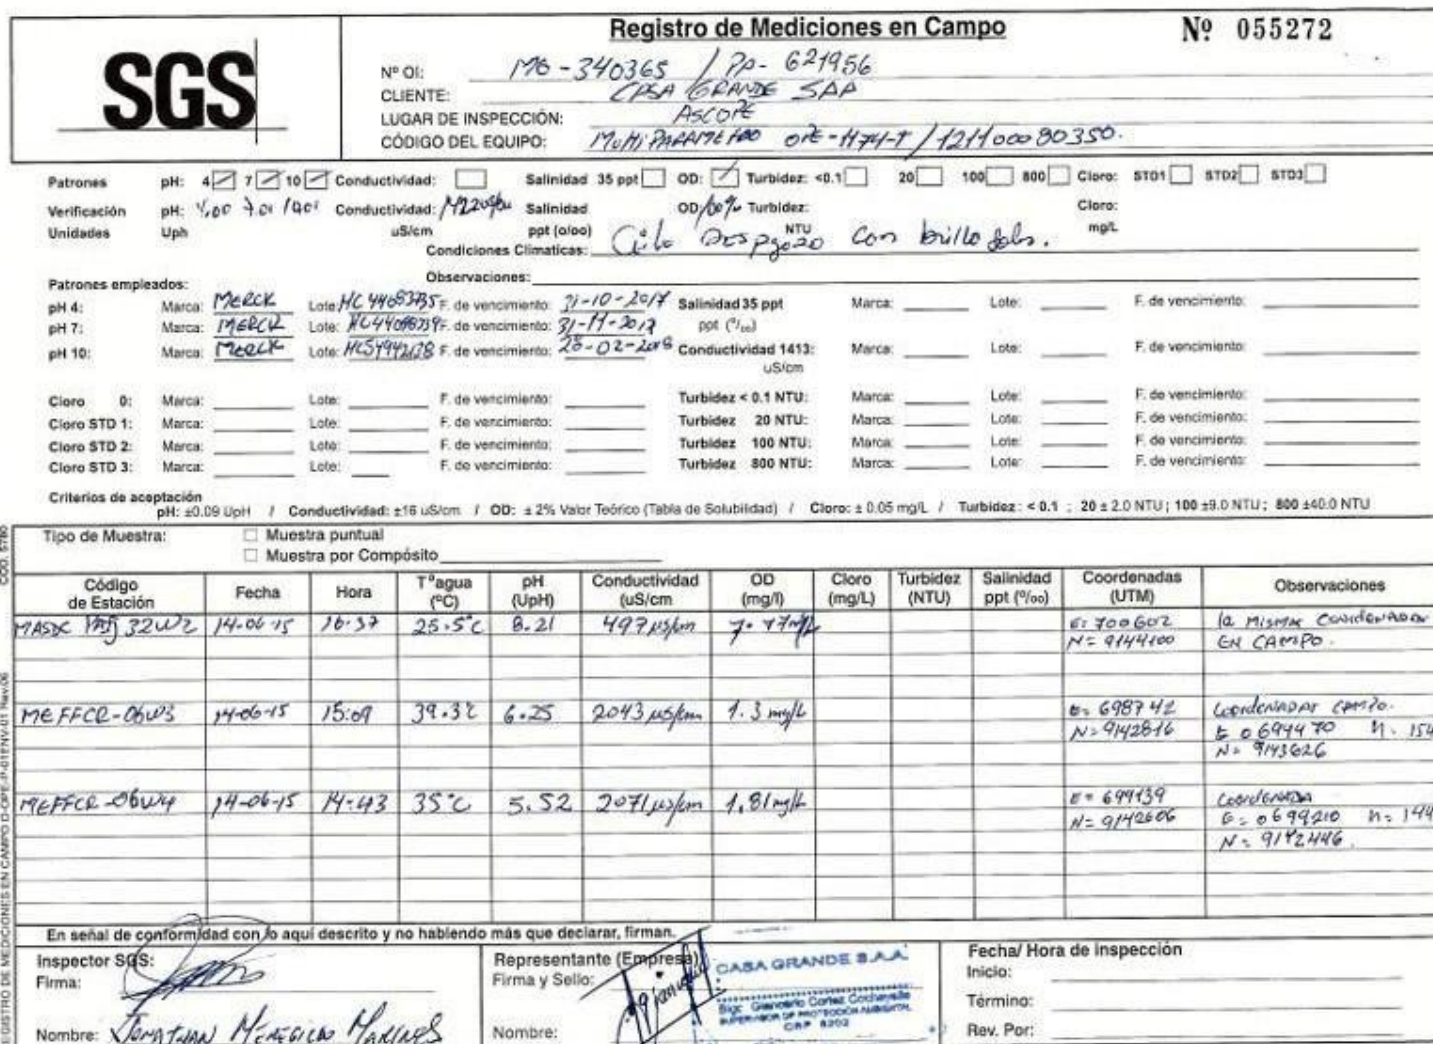 SGS
Registro de Mediciones en Campo
Nº 055272
Nº OI: MO-340365 / PA- 621956
CLIENTE: CASA GRANDE SAA
LUGAR DE INSPECCIÓN: ASCOPE
CÓDIGO DEL EQUIPO: MULTIPARAMETRO OPE-1174-T / 121100080350.
Patrones pH: 4 7 10 Conductividad: Salinidad 35 ppt OD: Turbidez: <0.1 20 100 800 Cloro: STD1 STD2 STD3
Verificación pH: 4.00 7.01 Conductividad: Salinidad OD 100% Turbidez: Cloro:
Unidades Uph uS/cm ppt (o/oo) NTU mg/L
Condiciones Climaticas: Cielo Despejado con brillo solar.
Observaciones:
Patrones empleados:
pH 4: Marca: MERCK Lote: HC44083735 F. de vencimiento: 31-10-2017 Salinidad 35 ppt Marca: Lote: F. de vencimiento:
pH 7: Marca: MERCK Lote: F. de vencimiento: 31-11-2017 ppt (º/oo)
pH 10: Marca: MERCK Lote: HC54942138 F. de vencimiento: 28-02-2018 Conductividad 1413: Marca: Lote: F. de vencimiento:
uS/cm
Cloro 0: Marca: Lote: F. de vencimiento: Turbidez < 0.1 NTU: Marca: Lote: F. de vencimiento:
Cloro STD 1: Marca: Lote: F. de vencimiento: Turbidez 20 NTU: Marca: Lote: F. de vencimiento:
Cloro STD 2: Marca: Lote: F. de vencimiento: Turbidez 100 NTU: Marca: Lote: F. de vencimiento:
Cloro STD 3: Marca: Lote: F. de vencimiento: Turbidez 800 NTU: Marca: Lote: F. de vencimiento:
Criterios de aceptación
pH: ±0.09 UpH / Conductividad: ±16 uS/cm / OD: ± 2% Valor Teórico (Tabla de Solubilidad) / Cloro: ± 0.05 mg/L / Turbidez: < 0.1 ; 20 ± 2.0 NTU; 100 ±9.0 NTU; 800 ±40.0 NTU
Tipo de Muestra: Muestra puntual
Muestra por Compósito
Código de Estación Fecha Hora Tºagua (ºC) pH (UpH) Conductividad (uS/cm OD (mg/l) Cloro (mg/L) Turbidez (NTU) Salinidad ppt (º/oo) Coordenadas (UTM) Observaciones
32W2 14-06-15 16:37 25.5°C 8.21 497 µs/cm 7.77 mg/L E: 700602 la misma coordenada
N= 9144100 EN CAMPO.
MEFFCR-06W3 14-06-15 15:09 39.3°C 6.25 2043 µs/cm 1.3 mg/L E: 698742 Coordenadas campo.
N= 9142816 E 0699470 h: 154
N= 9143626
MEFFCR-06W4 14-06-15 14:43 35°C 5.52 2071 µs/cm 1.81 mg/L E= 699139 Coordenada
N= 9142606 E= 0699210 h= 144
N= 9142446.
En señal de conformidad con lo aquí descrito y no habiendo más que declarar, firman.
Inspector SGS:
Firma:
Nombre: JONATHAN
Representante (Empresa)
Firma y Sello:
Nombre:
CASA GRANDE S.A.A.
SUPERVISOR DE PROTECCIÓN AMBIENTAL
CBP 8202
Fecha/ Hora de inspección
Inicio:
Término:
Rev. Por:
COD. 5780
REGISTRO DE MEDICIONES EN CAMPO D-OPE-P-01ENV-01 Rev.06